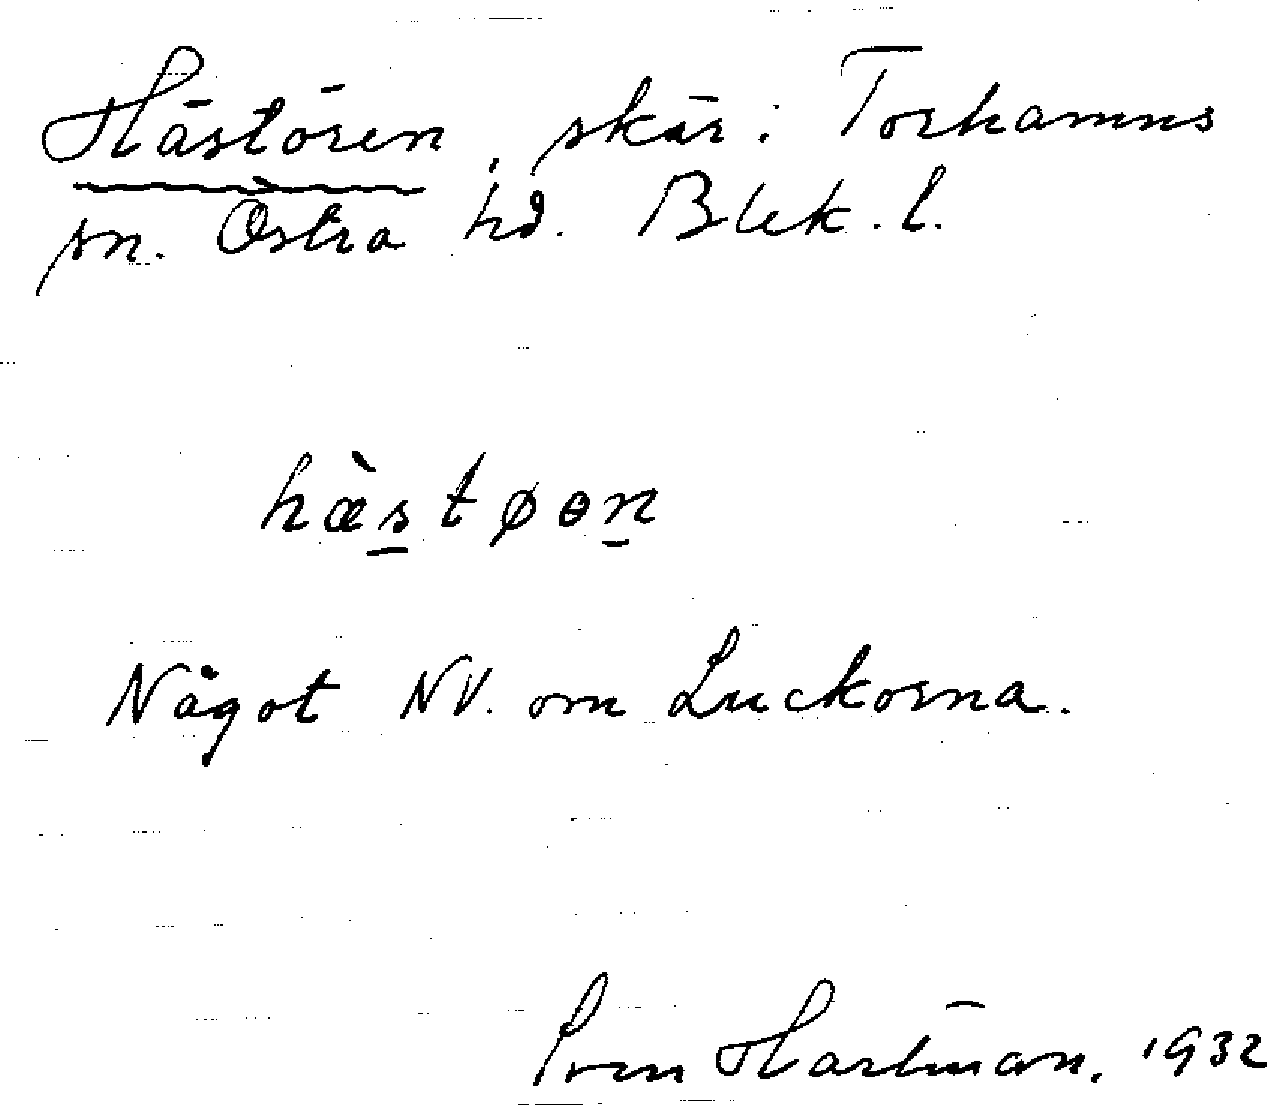 Hästören, skär i Torhamns
sn. Östra hd. Blek. l.
hæ̀støɵn
Något NV. om Luckorna.
Sven Hartman. 1932